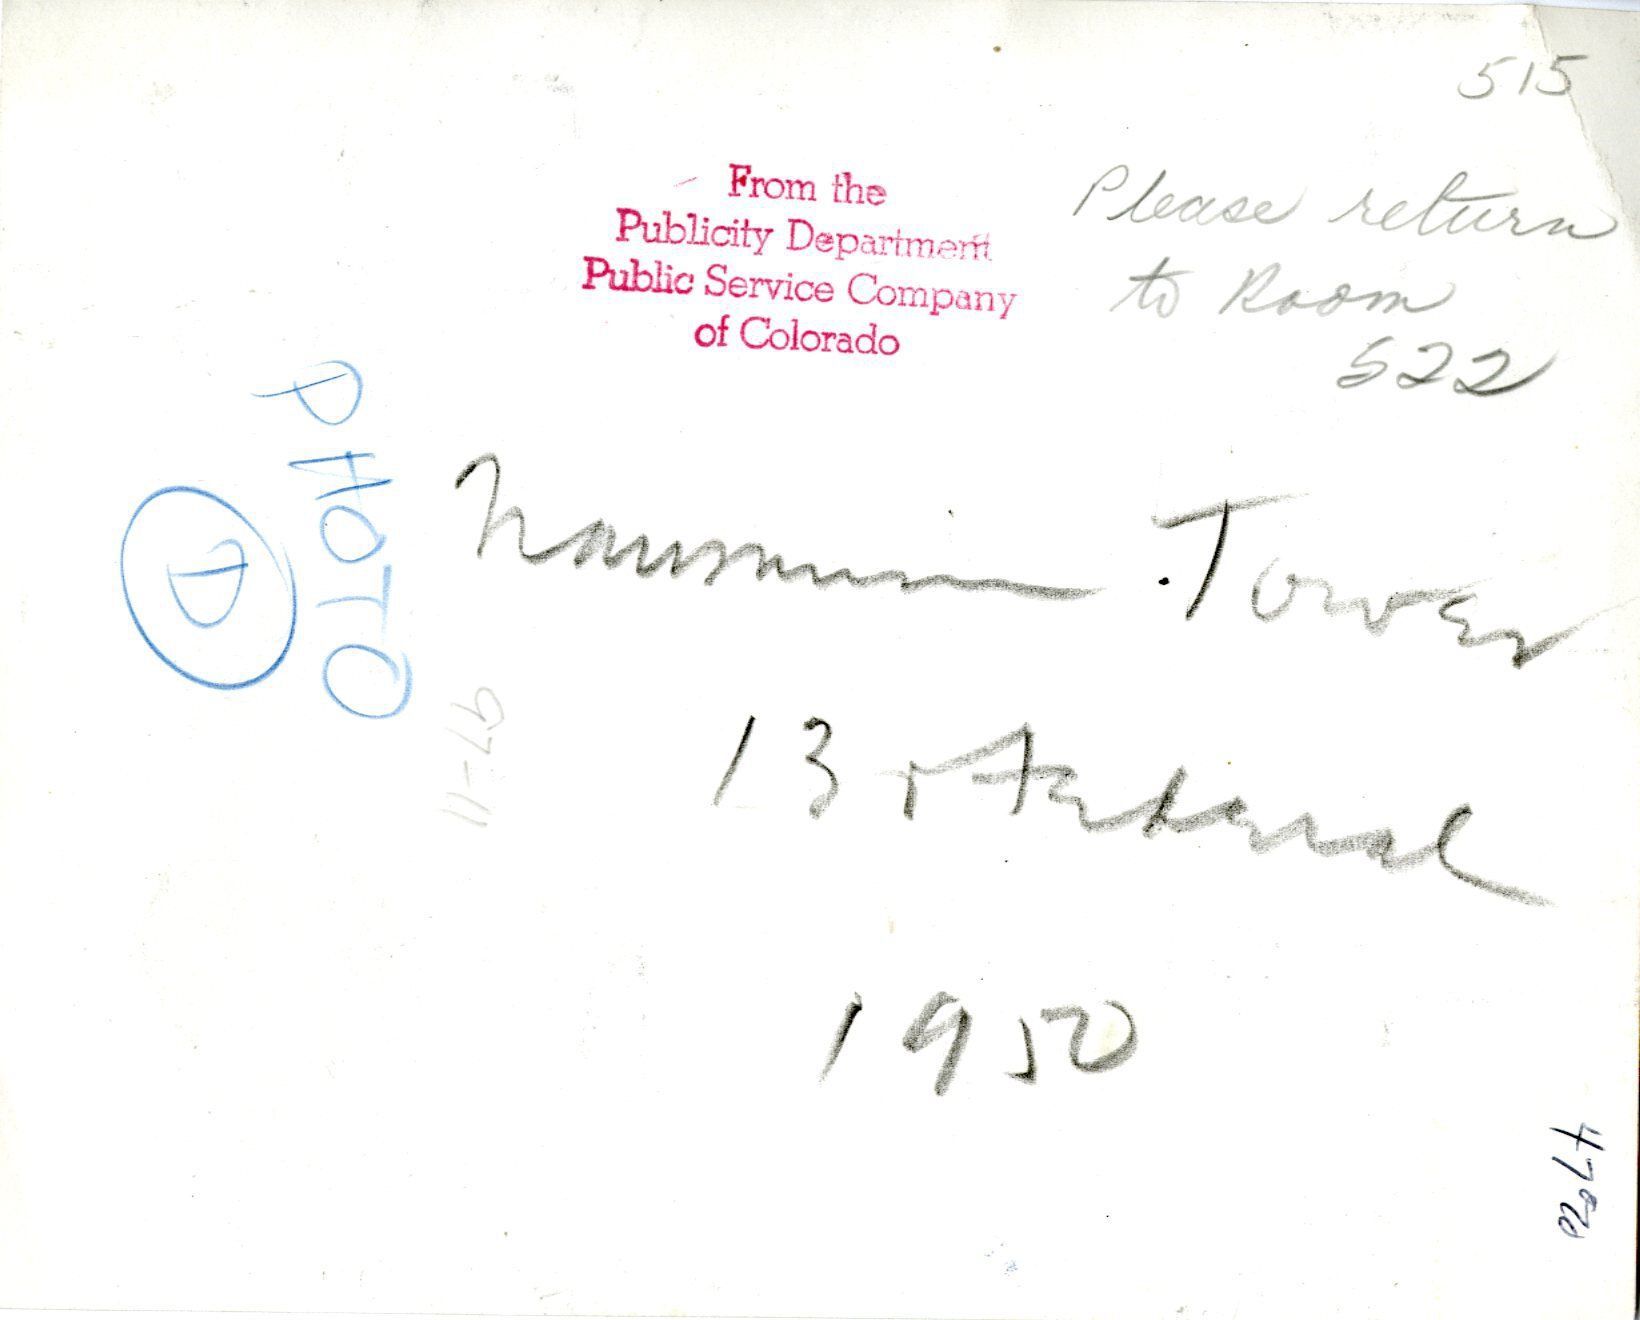 515
From the
Publicity Department
Public Service Company
of Colorado
Please return
to Room
522
PHOTO
D
Tower
97-11
13 + Federal
1950